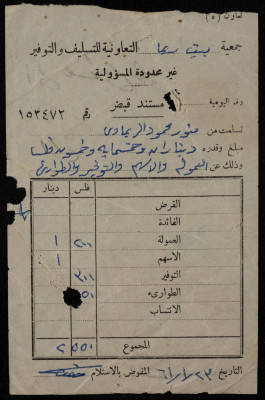 تعاون (٥)
جمعية بيت ريما التعاونية للتسليف والتوفير
غير محدودة المسؤولية
مستند قبض رقم ١٥٣٤٧٢
تسلمت من منور محمود الريماوي
مبلغ وقدره ديناران وخمسماية وخمسون فلس
وذلك عن العمولة والاسهم والتوفير والطوارئ
فلس دينار
القرض
الفائدة
العمولة ٢٠٠ ١
الاسهم ١
التوفير ٣٠٠
الطوارىء ٥٠
الانتساب
المجموع ٢٥٥٠
التاريخ ٢٣/١/٦١ المفوض بالاستلام